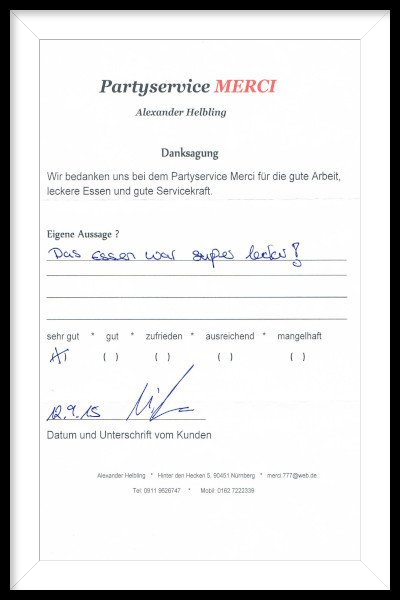 Partyservice MERCI
Alexander Helbling
Danksagung
Wir bedanken uns bei dem Partyservice Merci für die gute Arbeit,
leckere Essen und gute Servicekraft.
Eigene Aussage ?
Das Essen war super lecker!
sehr gut * gut * zufrieden * ausreichend * mangelhaft
( ) ( ) ( ) ( )
12.9.15
Datum und Unterschrift vom Kunden
Alexander Helbling * Hinter den Hecken 5, 90451 Nürnberg * merci.777@web.de
Tel: 0911 9626747 * Mobil: 0162 7222339